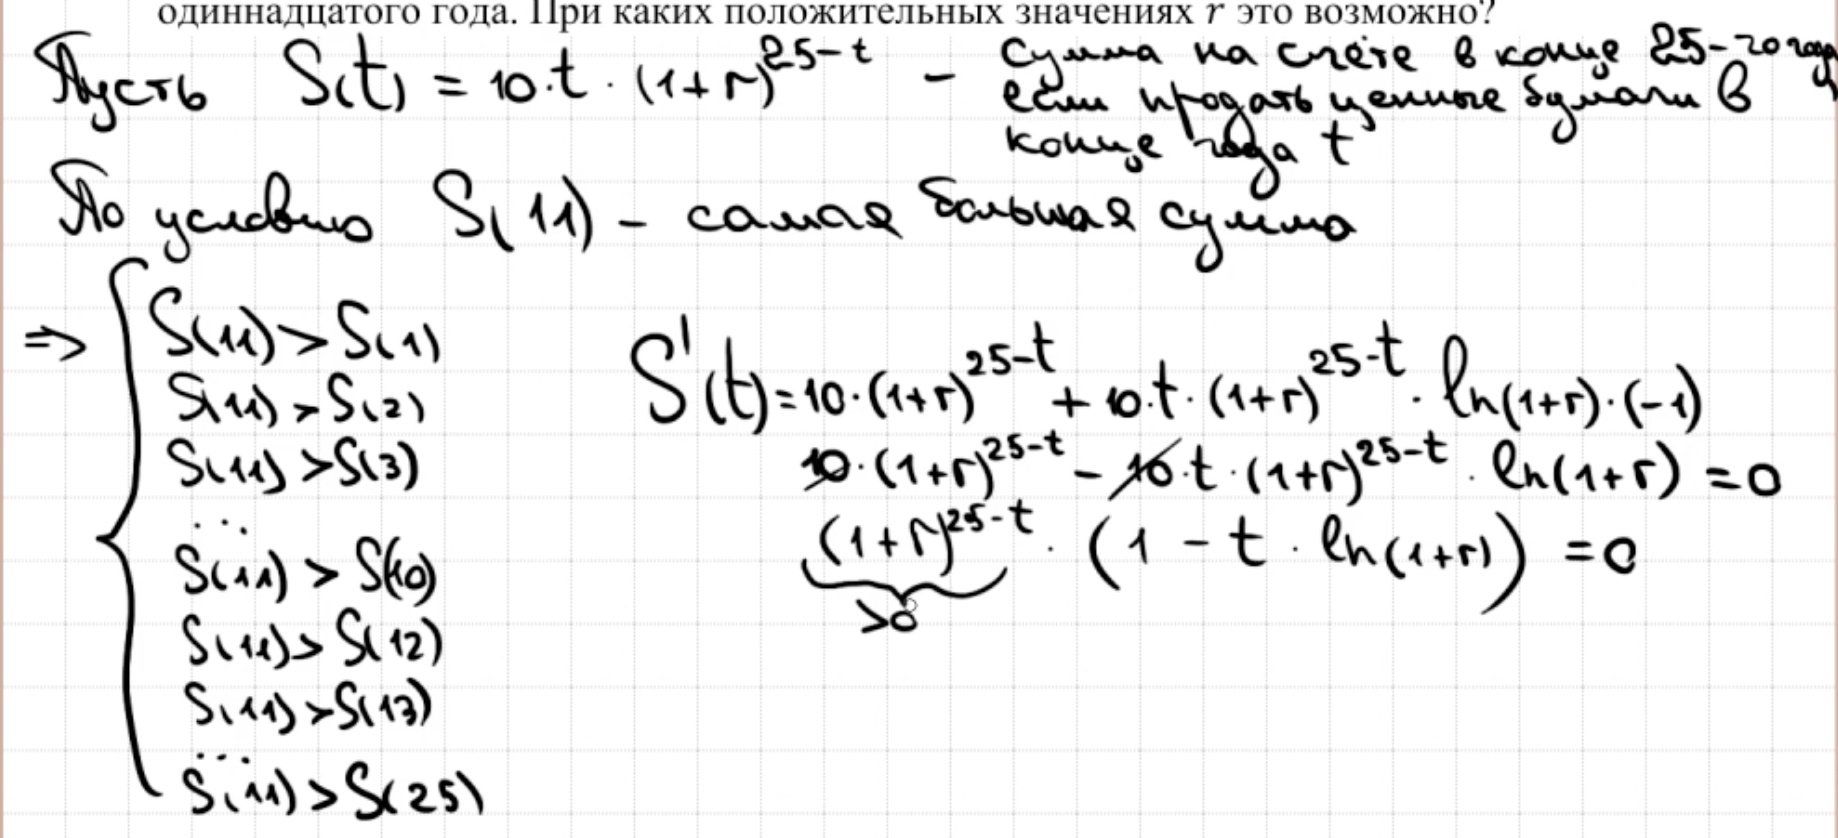 одиннадцатого года. При каких положительных значениях r это возможно?
Пусть S(t) = 10·t·(1+r)^25-t – сумма на счёте в конце 25-го года,
если продать ценные бумаги в
конце года t
По условию S(11) – самая большая сумма
=> S(11) > S(1)
S(11) > S(2)
S(11) > S(3)
...
S(11) > S(10)
S(11) > S(12)
S(11) > S(13)
...
S(11) > S(25)
S'(t) = 10·(1+r)^25-t + 10·t·(1+r)^25-t · ln(1+r)·(-1)
10·(1+r)^25-t – 10·t·(1+r)^25-t · ln(1+r) = 0
(1+r)^25-t · (1 – t · ln(1+r)) = 0
>0